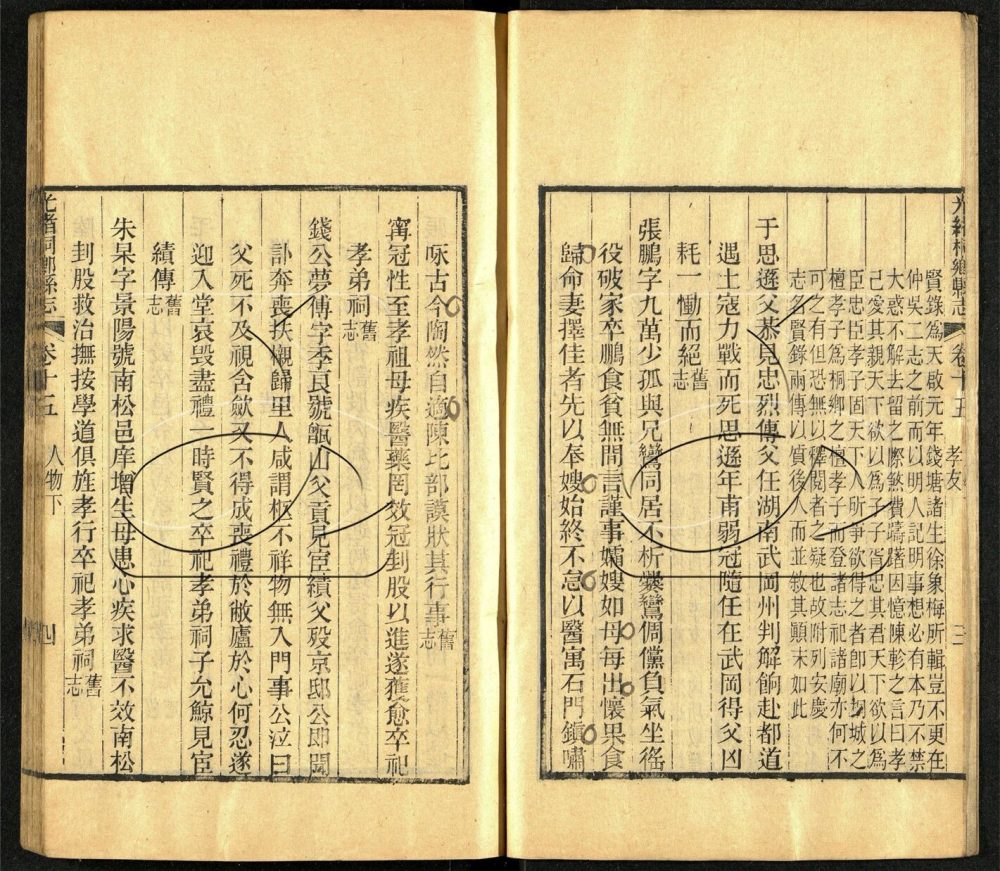 光緒桐鄉縣志 卷十五 孝友 三
賢錄為天啟元年錢塘諸生徐象梅所輯豈不更在
仲吳二志之前而以明人記明事想必有本乃不禁
大惑不解去留之際煞費躊躇因憶陳軫之言曰孝
己愛其親天下欲以為子子胥忠其君天下欲以為
臣忠臣孝子固天下人所爭欲得之者卽以桐城之
檀孝子為桐鄉之檀孝子而登諸志祀諸廟亦何不
可之有但恐無以釋閱者之疑也故附列安慶
志名賢錄兩傳以質後人而並敘其顛末如此
于思遜父恭見忠烈傳父任湖南武岡州判解餉赴都道
遇土寇力戰而死思遜年甫弱冠隨任在武岡得父凶
耗一慟而絕舊志
張鵬字九萬少孤與兄鸞同居不析爨鸞倜儻負氣坐徭
役破家卒鵬食貧無間言謹事孀嫂如母每出懷果食
歸命妻擇佳者先以奉嫂始終不怠以醫寓石門鎮嘯
咏古今陶然自適陳比部謨狀其行事舊志
甯冠性至孝祖母疾醫藥罔效冠刲股以進遂獲愈卒祀
孝弟祠舊志
錢公夢傅字季良號甑山父貢見宦績父歿京邸公卽聞
訃奔喪扶櫬歸里人咸謂柩不祥物無入門事公泣曰
父死不及視含歛又不得成喪禮於敝廬於心何忍遂
迎入堂哀毀盡禮一時賢之卒祀孝弟祠子允鯨見宦
績傳舊志
朱杲字景陽號南松邑庠增生母患心疾求醫不效南松
刲股救治撫按學道俱旌孝行卒祀孝弟祠舊志
光緒桐鄉縣志 卷十五 人物下 四